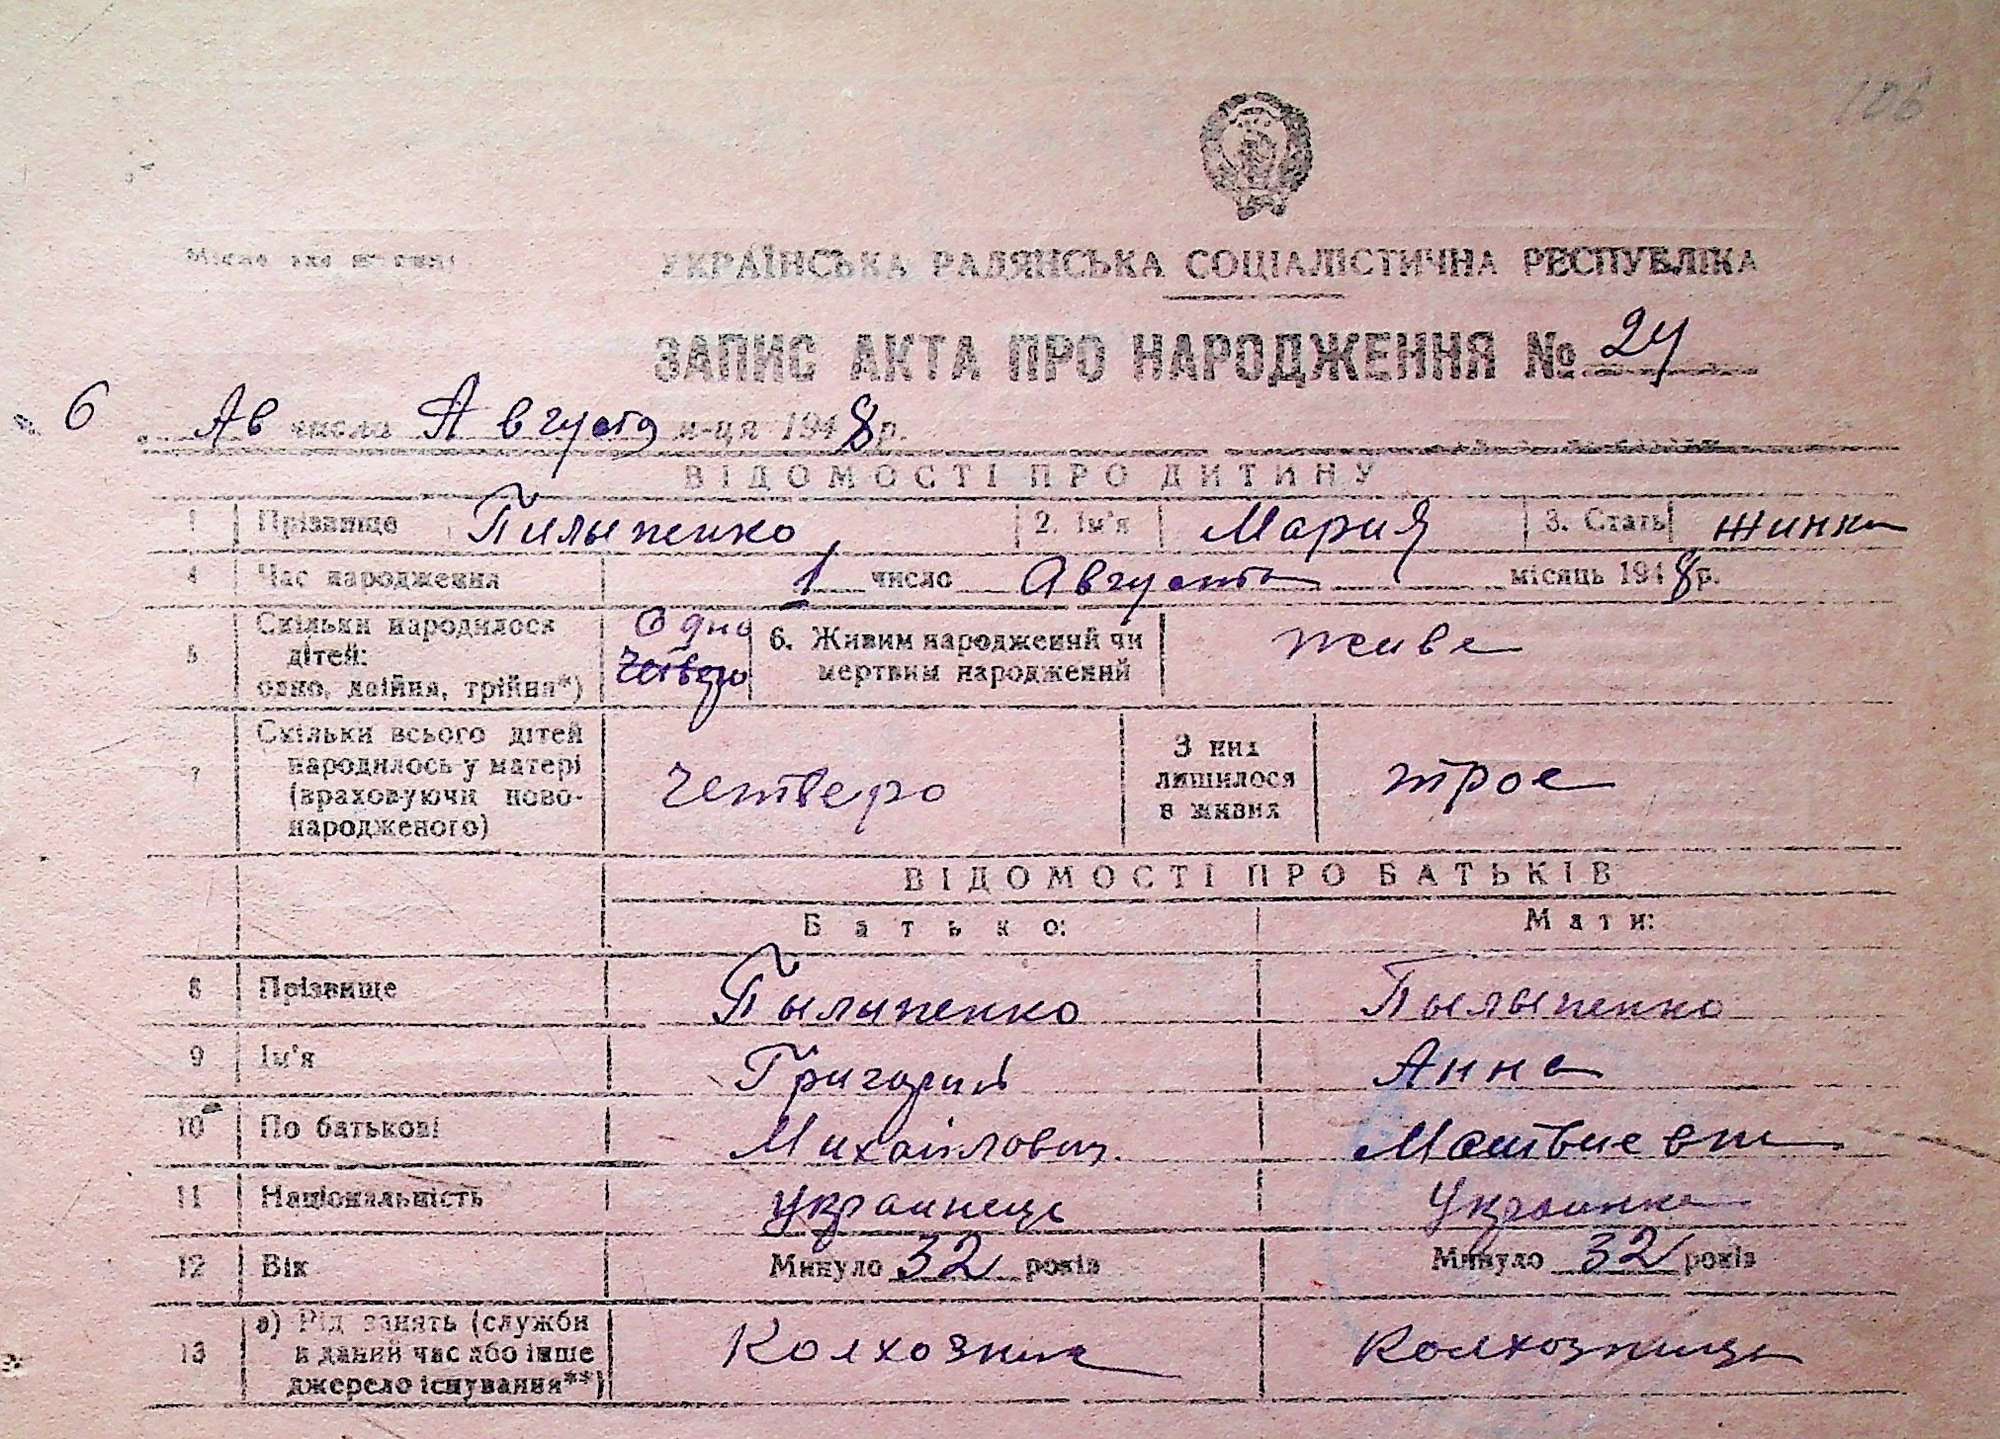 106
УКРАЇНСЬКА РАДЯНСЬКА СОЦІАЛІСТИЧНА РЕСПУБЛІКА
ЗАПИС АКТА ПРО НАРОДЖЕННЯ № 24
6 Ав числа Августа м-ця 1948 р.
ВІДОМОСТІ ПРО ДИТИНУ
1 Прізвище Пилыпенко 2. Ім'я Мария 3. Стать жинка
4 Час народження 1 число Августа місяць 1948 р.
5 Скільки народилося дітей: одно, двійня, трійня*) Одно четверо 6. Живим народжений чи мертвим народжений живе
7 Скільки всього дітей народилось у матері (враховуючи новонародженого) четверо З них лишилося в живих трое
ВІДОМОСТІ ПРО БАТЬКІВ
Батько: Мати:
8 Прізвище Пылыпенко Пылыпенко
9 Ім'я Григорий Анна
10 По батькові Михайлович Матвиевна
11 Національність украинець Украинка
12 Вік Минуло 32 років Минуло 32 років
13 а) Рід занять (служби в даний час або інше джерело існування**) Колхозник Колхозница